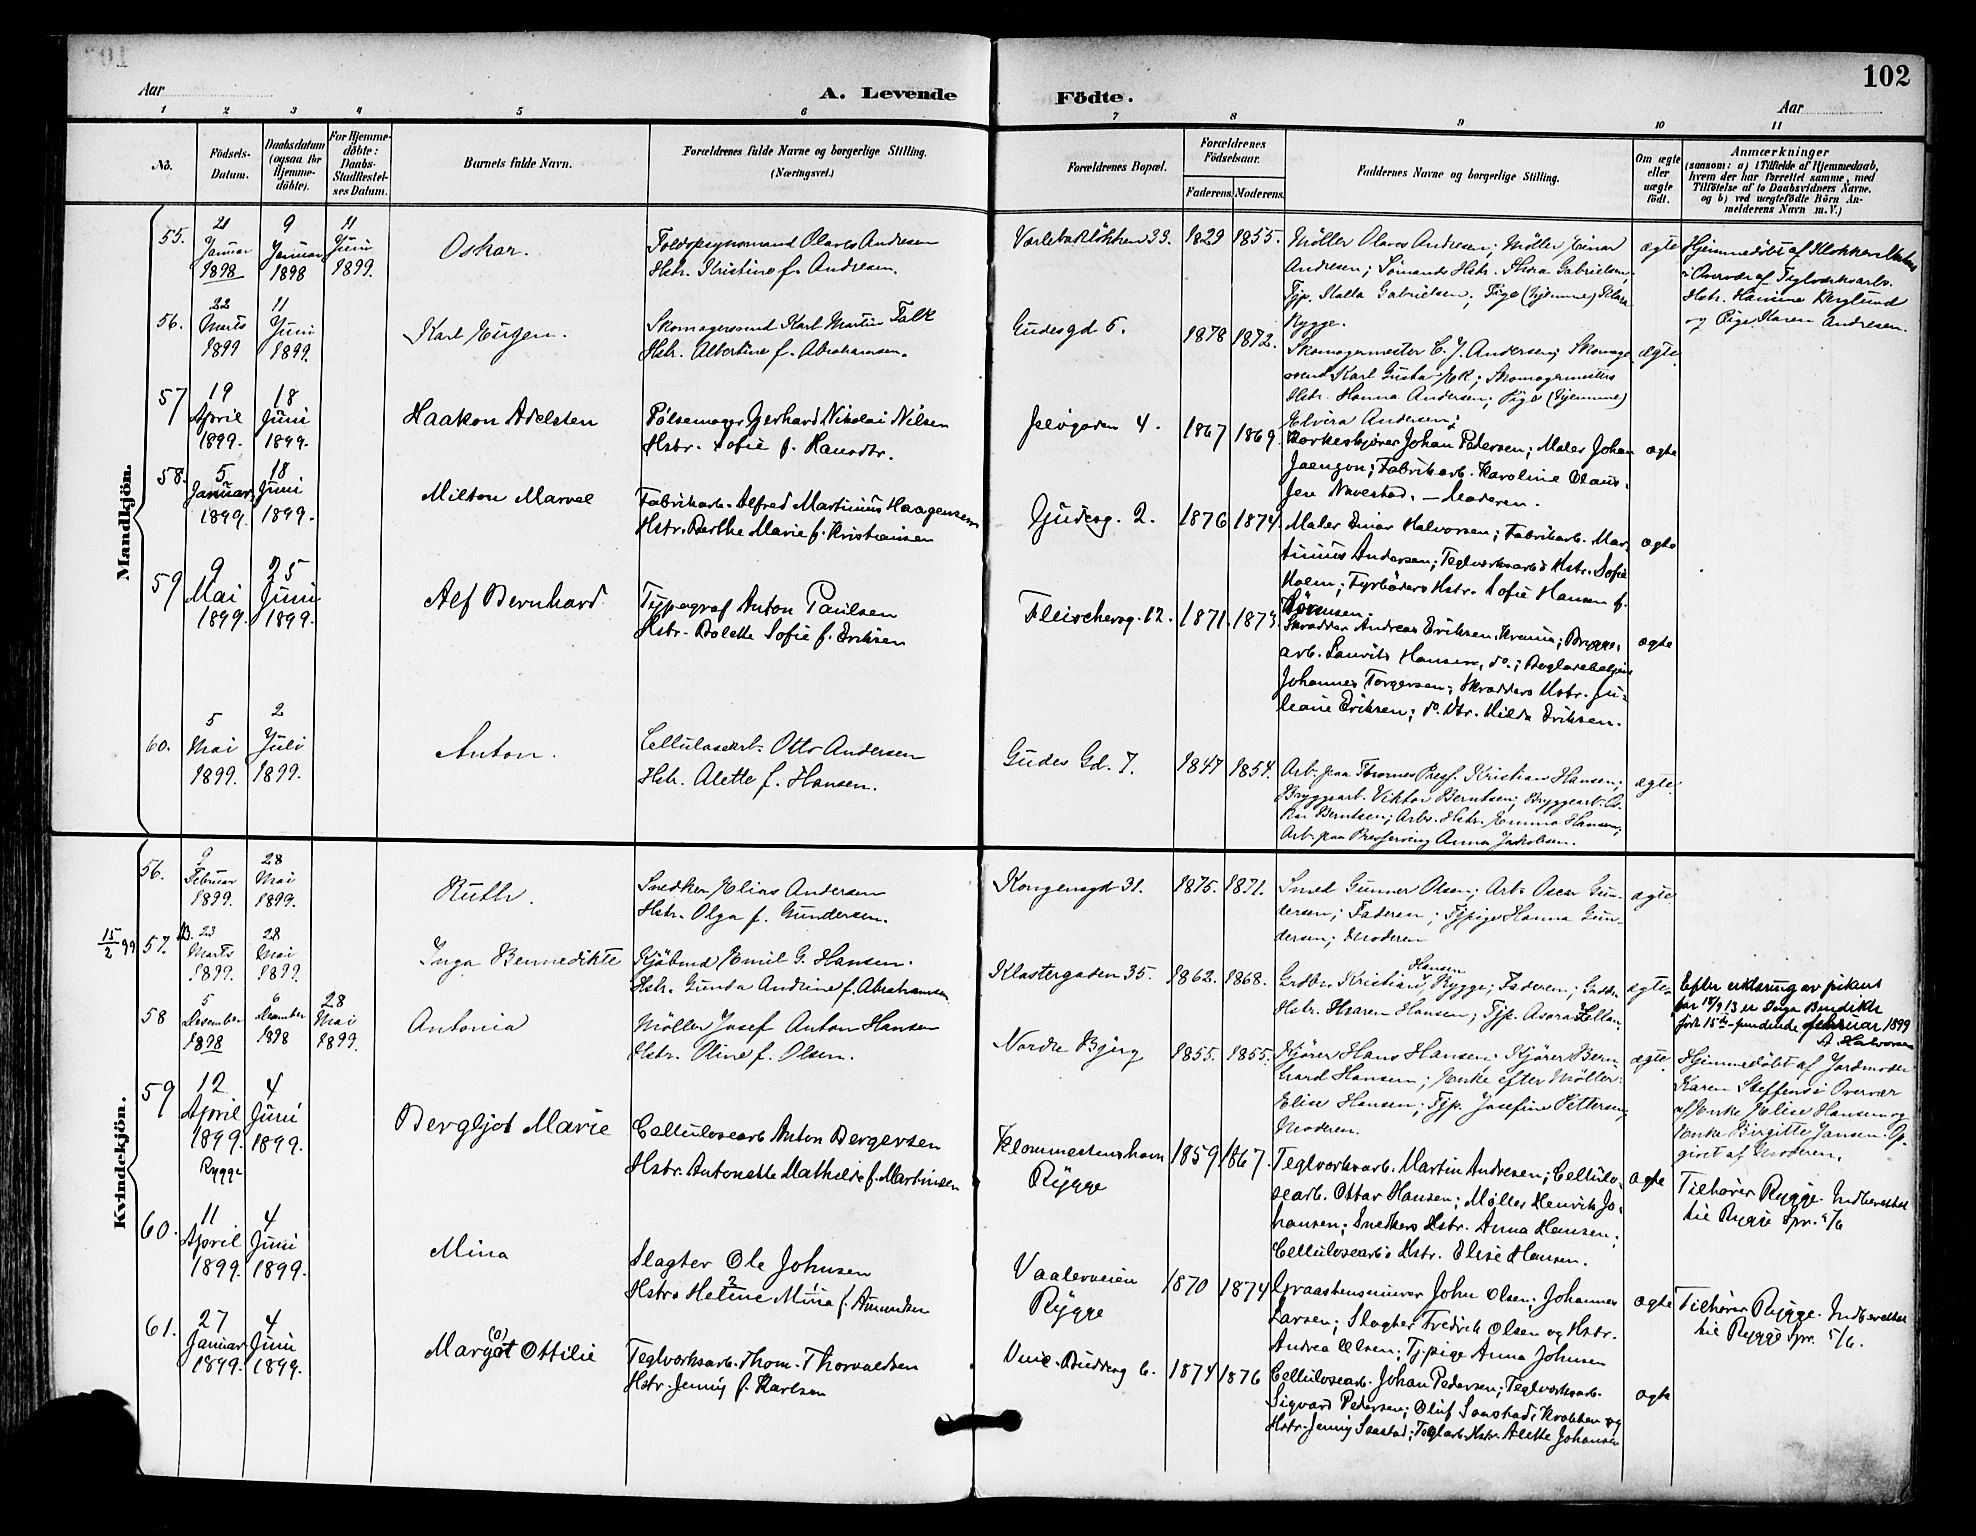 102
Aar
A. Levende
Födte.
Aar
1 2 3 4 5 6 7 8 9 10 11
No.
Födsels-
Datum.
Daabsdatum
(ogsaa for
Hjemme-
döbte).
For Hjemme-
döbte:
Daabs-
Stadfæstel-
ses Datum.
Barnets fulde Navn.
Forældrenes fulde Navne og borgerlige Stilling.
(Næringsvei.)
Forældrenes Bopæl.
Forældrenes
Födselsaar.
Faderens. Moderens.
Faddernes Navne og borgerlige Stilling.
Om ægte
eller
uægte
födt.
Anmærkninger
(saasom: a) i Tilfælde af Hjemmedaab,
hvem der har forrettet samme, med
Tilföielse af to Daabsvidners Navne.
og b) ved uægtefödte Börn An-
melderens Navn m. V.)
Mandkjön.
55.
21
Januar
1898
9
Januar
1898
11
Juni
1899.
Oskar.
Olaves Andresen
Hstr. Kristine f. Andresen.
33.
1829 1855.
Möller Olaves Andresen; Möller Einar
Andresen; Sömands Hstr. Thora Gabrielsen;
Tjp. Kalla Gabrielsen; Pige (hjemme) Klara
Rygge.
ægte
Hjemmedöbt af Klokker
i Overvær af Teglværksarb.
Hstr. Hanine Berglund
og Pige Karen Andresen.
56.
22
Marts
1899
11
Juni
1899.
Karl Eugen.
Skomagersvend Karl Martin Falk
Hstr. Albertine f. Abrahamsen.
Gudesgd 5.
1878 1872.
Skomagermester C. J. Andersen; Skomager
svend Karl Gustav Ek; Skomagermesters
Hstr. Hanna Andersen; Pige (hjemme)
Elvira Andersen;
ægte
57
19
April
1899.
18
Juni
1899.
Haakon Adelsten
Pölsemager Gerhard Nikolai Nilsen
Hstr. Sofie f. Hansdtr.
Jelögaden 4.
1867 1869.
Johan Pedersen; Maler Johan
Fabrikarb. Karoline Olaus-
Navestad. — Moderen.
ægte
58.
5
Januar
1899.
18
Juni
1899.
Milton Marvel
Fabrikarb. Alfred Martinius Haagensen
Hstr. Berthe Marie f. Kristiansen
Gudesg. 2.
1876 1874.
Maler Einar Halvorsen; Fabrikarb. Mar-
tinius Andersen; Teglverksarb's Hstr. Sofie
Holm; Fyrböders Hstr. Sofie Hansen f.
Sörensen.
ægte
59
9
Mai
1899.
25
Juni
1899.
Alf Bernhard
Typograf Anton Paulsen
Hstr. Bolette Sofie f. Eriksen
Fleischersg. 12.
1871. 1873.
Skrædder Andreas Eriksen, Krania; Brygge-
arb. Laurits Hansen, do.;
Johannes Torgersen; Skrædders Hstr. Ju-
liane Eriksen; do. Dtr. Hilda Eriksen.
ægte
60.
5
Mai
1899.
2
Juli
1899.
Anton.
Cellulosearb. Otto Andersen
Hstr. Alette f. Hansen.
Gudes Gd. 7.
1847 1854.
Arb. paa Thornes Pres. Kristian Hansen;
Bryggearb. Viktor Berntsen; Bryggearb. Os-
kar Berntsen; Arbs. Hstr. Emma Hansen;
Arb. paa Preserving Anna Jakobsen.
ægte
Kvindekjön.
56.
9
Februar
1899.
28
Mai
1899.
Ruth.
Snedker Elias Andersen
Hstr. Olga f. Gundersen.
Kongensgd 31.
1875. 1871.
Smed Gunner Olsen; Arb. Oscar Gun-
dersen; Faderen; Tjpige Hanna Gun-
dersen; Moderen
ægte
15/2 99
57.
23
Marts
1899.
28
Mai
1899.
Inga Bennedikte
Kjöbmd Emil G. Hansen.
Hstr. Gunda Andrine f. Abrahamsen
Klostergaden 35.
1862. 1868.
Grdbr. Kristian Hansen Rygge; Faderen; Grdbr.
Hstr. Maren Hansen; Tjp.
ægte
Efter erklæring av
14/9 13 er Inga Bendikte
födt 15de femtende februar 1899
A Halvorsen
58
5
Desember
1898
6
Desember
1898
28
Mai
1899.
Antonia
Möller Josef Anton Hansen
Hstr. Oline f. Olsen.
Nordre Bjerg
1855. 1855.
Kjörer Hans Hansen; Kjörer Bern-
hard Hansen; Enke efter Möller
Elise Hansen; Tjp. Josefine Pettersen;
Moderen.
ægte
Hjemmedöbt af Jordmoder
Karen Steffens i Overvær
af Enke Elise Hansen og
Enke Birgitte Jansen. Op-
givet af Moderen.
59
12
April
1899.
Rygge
4
Juni
1899.
Bergljot Marie
Cellulosearb. Anton Bergersen
Hstr. Antonette Mathilde f. Martinsen
Klommestenshavn
Rygge
1859. 1867.
Teglverksarb. Martin Andresen; Cellulo-
searb. Ottar Hansen; Møller Henrik Jo-
hansen; Snedkers Hstr. Anna Hansen;
Cellulosearb's Hstr. Elise Hansen.
ægte
Tilhører Rygge. Indberettet
til Rygge Spr. 5/6
60.
11
April
1899.
4
Juni
1899.
Mina
Slagter Ole Johnsen
Hstr. Heline Mina f. Amundsen
2 1
Vaalerveien
Rygge
1870 1874
Graastensminør John Olsen; Johannes
Larsen; Slagter Fredrik Olsen og Hstr.
Andrea Olsen; Tjpige Anna Johnsen
ægte
Tilhører Rygge. Indberettet
til Rygge Spr. 5/6.
61.
27
Januar
1899.
4
Juni
1899.
Margot Ottilie
(o)
Teglværksarb. Thom. Thorvaldsen
Hstr. Jenny f. Karlsen
6.
1874 1876
Cellulosearb. Johan Pedersen; Teglværksarb.
Sigvard Pedersen; Oluf Saastad, Krokken og
Hstr. Jenny Saastad; Teglarb. Hstr. Alette Johansen
ægte